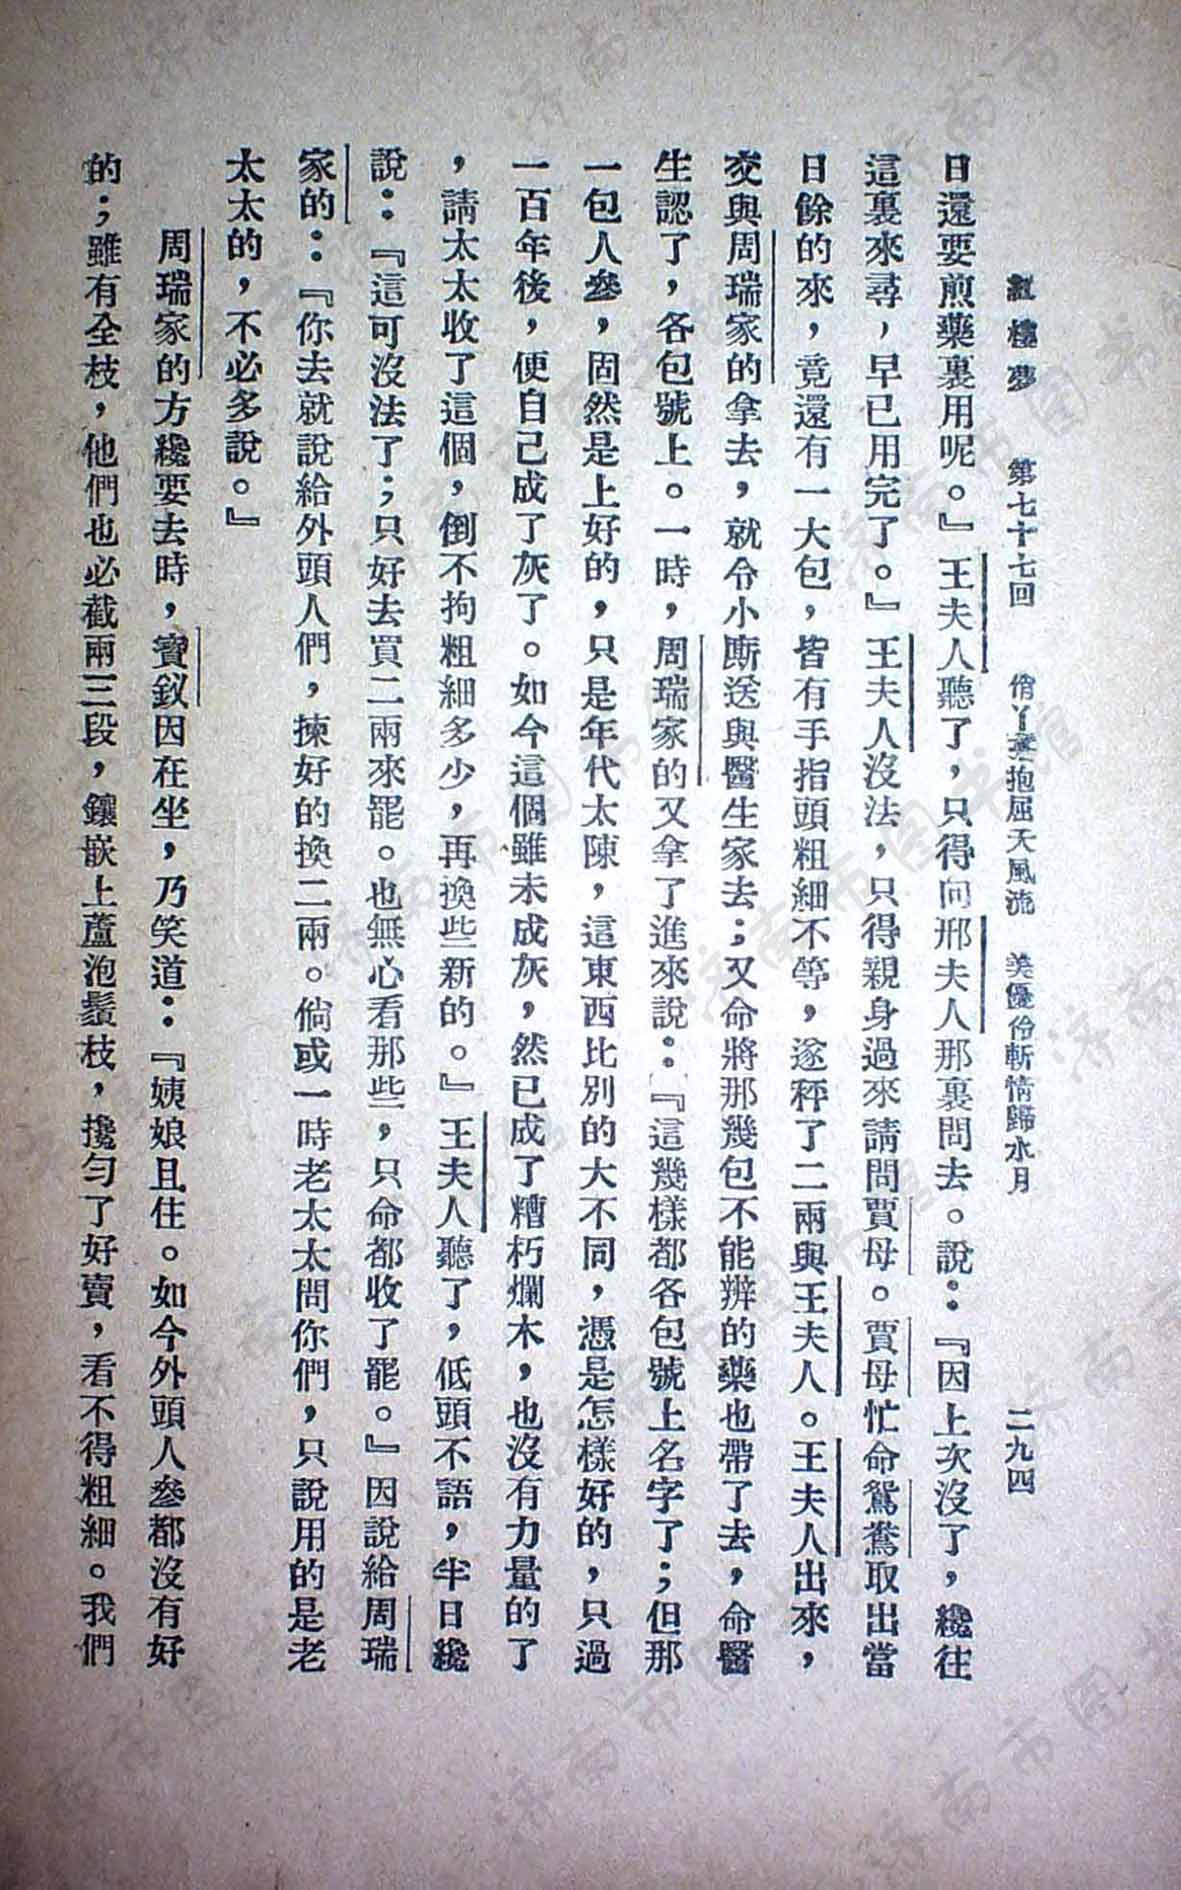 紅樓夢　第七十七回　俏丫鬟抱屈夭風流　美優伶斬情歸水月　二九四
日還要煎藥裏用呢。』王夫人聽了，只得向邢夫人那裏問去。說：『因上次沒了，纔往
這裏來尋，早已用完了。』王夫人沒法，只得親身過來請問賈母。賈母忙命鴛鴦取出當
日餘的來，竟還有一大包，皆有手指頭粗細不等，遂秤了二兩與王夫人。王夫人出來，
交與周瑞家的拿去，就令小廝送與醫生家去；又命將那幾包不能辨的藥也帶了去，命醫
生認了，各包號上。一時，周瑞家的又拿了進來說：『這幾樣都各包號上名字了；但那
一包人參，固然是上好的，只是年代太陳，這東西比別的大不同，憑是怎樣好的，只過
一百年後，便自己成了灰了。如今這個雖未成灰，然已成了糟朽爛木，也沒有力量的了
，請太太收了這個，倒不拘粗細多少，再換些新的。』王夫人聽了，低頭不語，半日纔
說：『這可沒法了；只好去買二兩來罷。也無心看那些，只命都收了罷。』因說給周瑞
家的：『你去就說給外頭人們，揀好的換二兩。倘或一時老太太問你們，只說用的是老
太太的，不必多說。』
周瑞家的方纔要去時，寶釵因在坐，乃笑道：『姨娘且住。如今外頭人參都沒有好
的；雖有全枝，他們也必截兩三段，鑲嵌上蘆泡鬚枝，攙勻了好賣，看不得粗細。我們
济南市图书馆